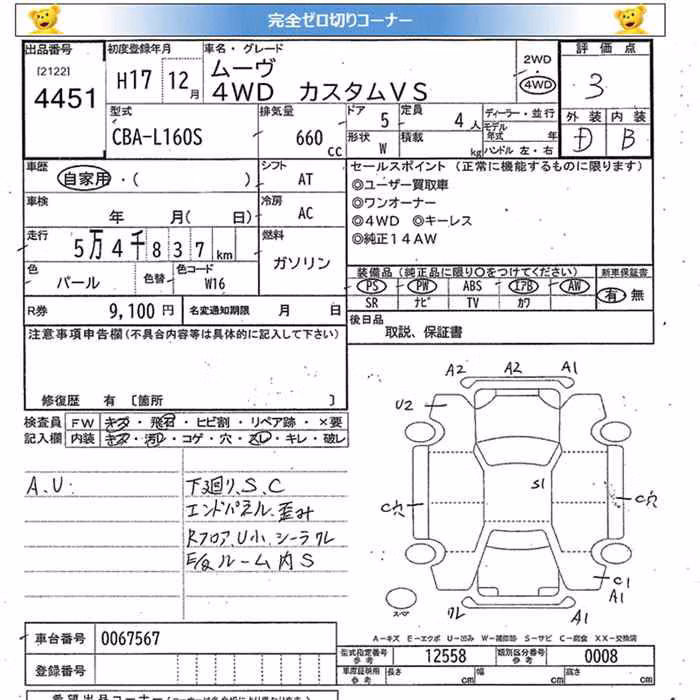 完全ゼロ切りコーナー
出品番号 初度登録年月 車名・グレード 評価点
[2122]
4451
H17 12月
ムーヴ
4WD カスタムVS
2WD
4WD
3
型式 排気量 ドア 5 定員 4人 ディーラー・並行
CBA-L160S 660cc
形状 W 積載 kg
モデル年式 年
ハンドル 左・右
外装 内装
D B
車歴 自家用・( )
シフト AT
セールスポイント(正常に機能するものに限ります)
◎ユーザー買取車
◎ワンオーナー
◎4WD ◎キーレス
◎純正14AW
車検 年 月( 日)
冷房 AC
走行 5万4千837km
燃料 ガソリン
色 パール 色替 色コード W16
装備品(純正品に限り○をつけてください) 新車保証書
PS PW ABS エアB AW 有・無
SR ナビ TV カワ
R券 9,100円 名変通知期限 月 日
後日品 取説、保証書
注意事項申告欄(不具合内容等は具体的に記入して下さい)
修復歴 有 [箇所 ]
検査員記入欄
FW キズ・飛石・ヒビ割・リペア跡・×要
内装 キズ・汚れ・コゲ・穴・スレ・キレ・破レ
A.U:
下廻り.S.C
エンドパネル.歪み
Rフロア.U小.シーラワレ
E/gルーム内S
A2 A2 A1
U2
S1
C穴 C穴
C1
A1
ワレ A1
スペア
A-キズ E-エクボ U-凹み W-補修跡 S-サビ C-腐食 XX-交換済
車台番号 0067567
登録番号
型式指定番号 参考 12558 類別区分番号 参考 0008
車庫証明用 参考 長さ cm 幅 cm 高さ cm